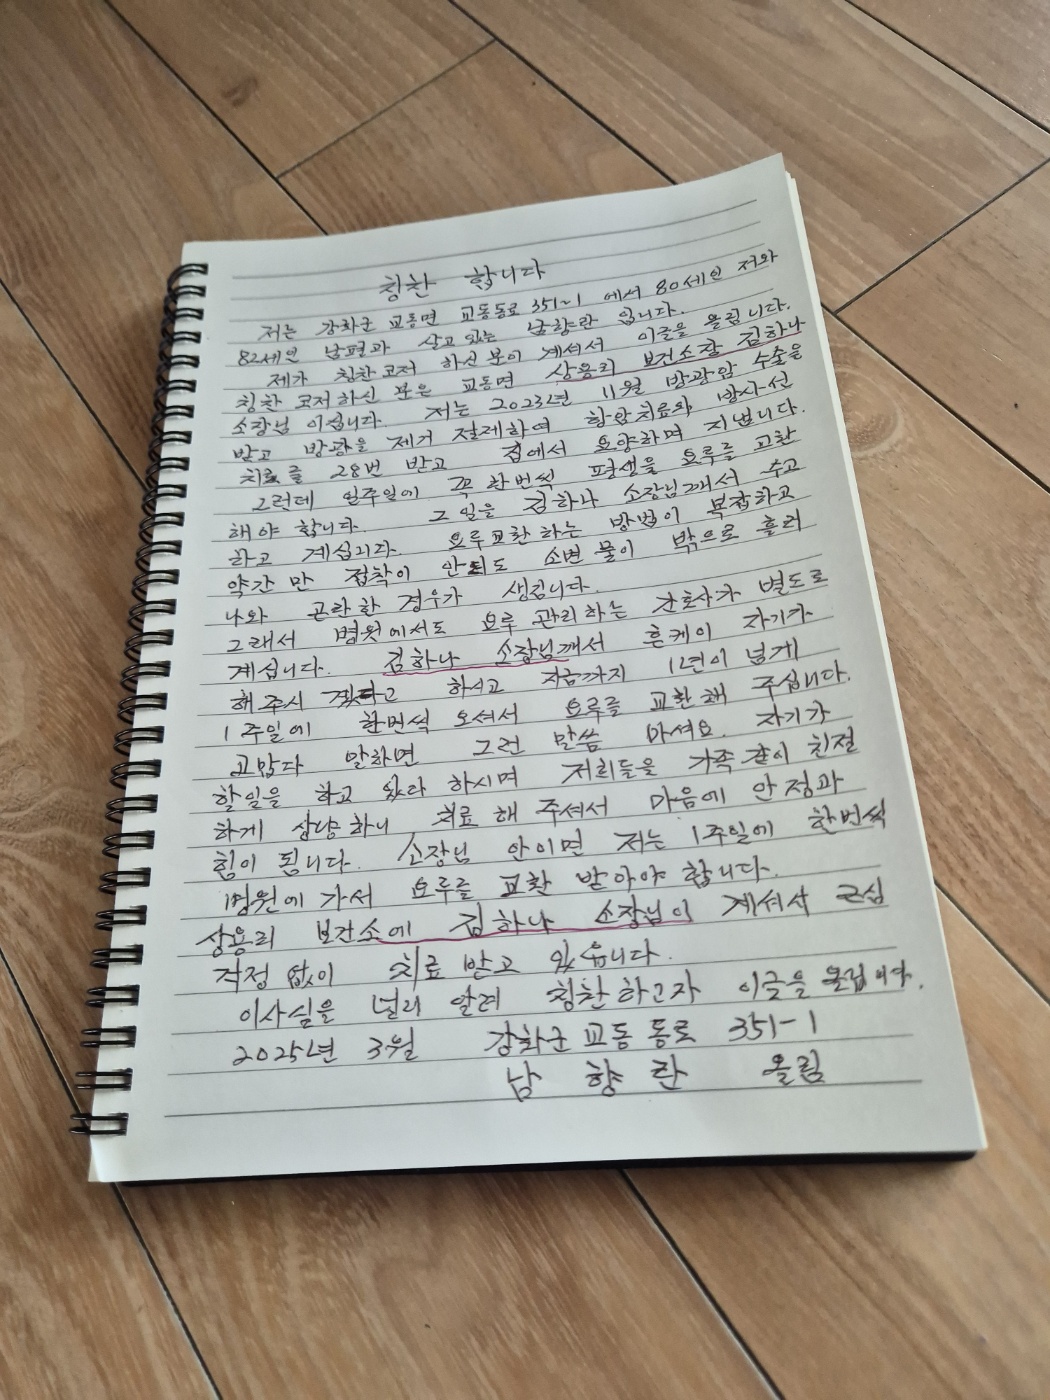 칭찬 합니다
저는 강화군 교동면 교동동로 351-1 에서 80세인 저와
82세인 남편과 살고 있는 남향란 입니다.
제가 칭찬코저 하신 분이 계셔서 이글을 올립니다.
칭찬 코저하신 분은 교동면 상용리 보건소장 김하나
소장님 이십니다. 저는 2023년 11월 방광암 수술을
받고 방광을 제거 절제하여 항암치료와 방사선
치료를 28번 받고 집에서 요양하며 지냅니다.
그런데 일주일에 꼭 한번씩 평생을 요루를 교환
해야 합니다. 그 일을 김하나 소장님께서 수고
하고 계십니다. 요루교환하는 방법이 복잡하고
약간만 접착이 안되도 소변 물이 밖으로 흘러
나와 곤란한 경우가 생깁니다.
그래서 병원에서도 요루 관리하는 간호사가 별도로
계십니다. 김하나 소장님께서 흔케이 자기가
해주시겠다고 하시고 지금까지 1년이 넘게
1주일에 한번씩 오셔서 요루를 교환해 주십니다.
고맙다 말하면 그런 말씀 마셔요. 자기가
할일을 하고 있다 하시며 저희들을 가족같이 친절
하게 상냥하니 치료 해 주셔서 마음에 안정과
힘이 됩니다. 소장님 안이면 저는 1주일에 한번씩
병원에 가서 요루를 교환 받아야 합니다.
상용리 보건소에 김하나 소장님이 계셔서 근심
걱정 없이 치료 받고 있습니다.
이사실을 널리 알려 칭찬하고자 이글을 올립니다.
2025년 3월 강화군 교동 동로 351-1
남 향 란 올림